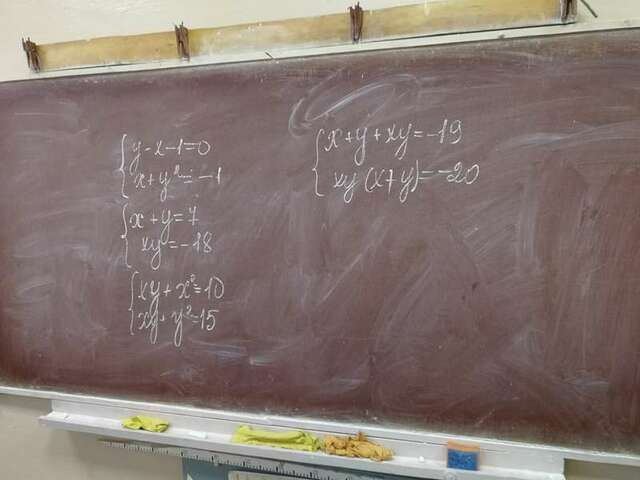 y-x-1=0
x+y²=-1
x+y=7
xy=-18
xy+x²=10
xy+y²=15
x+y+xy=-19
xy(x+y)=-20